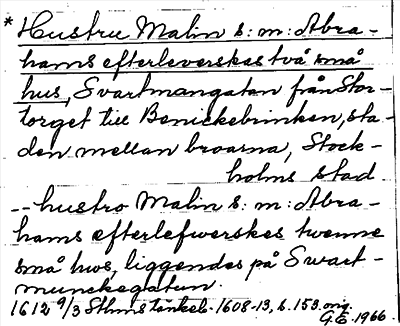 * Hustru Malin s: m: Abra-
hams efterleverskas två små
hus, Svartmangatan från Stor-
torget till Benickebrinken, sta-
den mellan broarna, Stock-
holms stad
-- hustro Malin s: m: Abra-
hams efterlefwerskes twenne
små hws, liggendes på Swart-
munckegatun.
1612 9/3 Sthms tänkeb. 1608-13, s. 153. orig.
G.E. 1966.